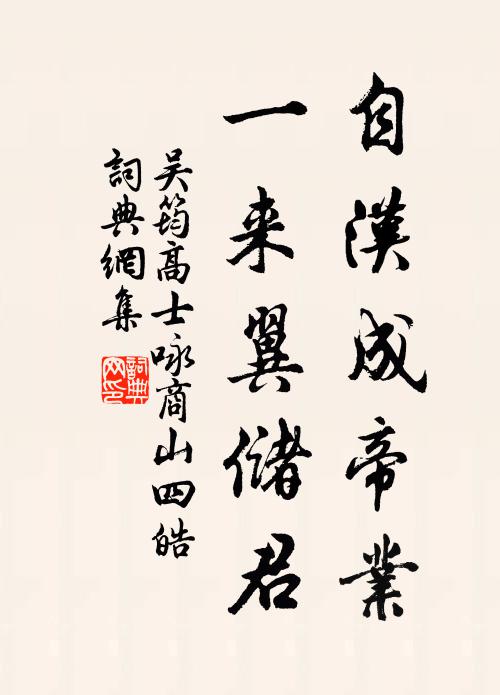 自漢成帝業
一来翼儲君
吴筠高士咏商山四皓
詞典網集
詞典
网印